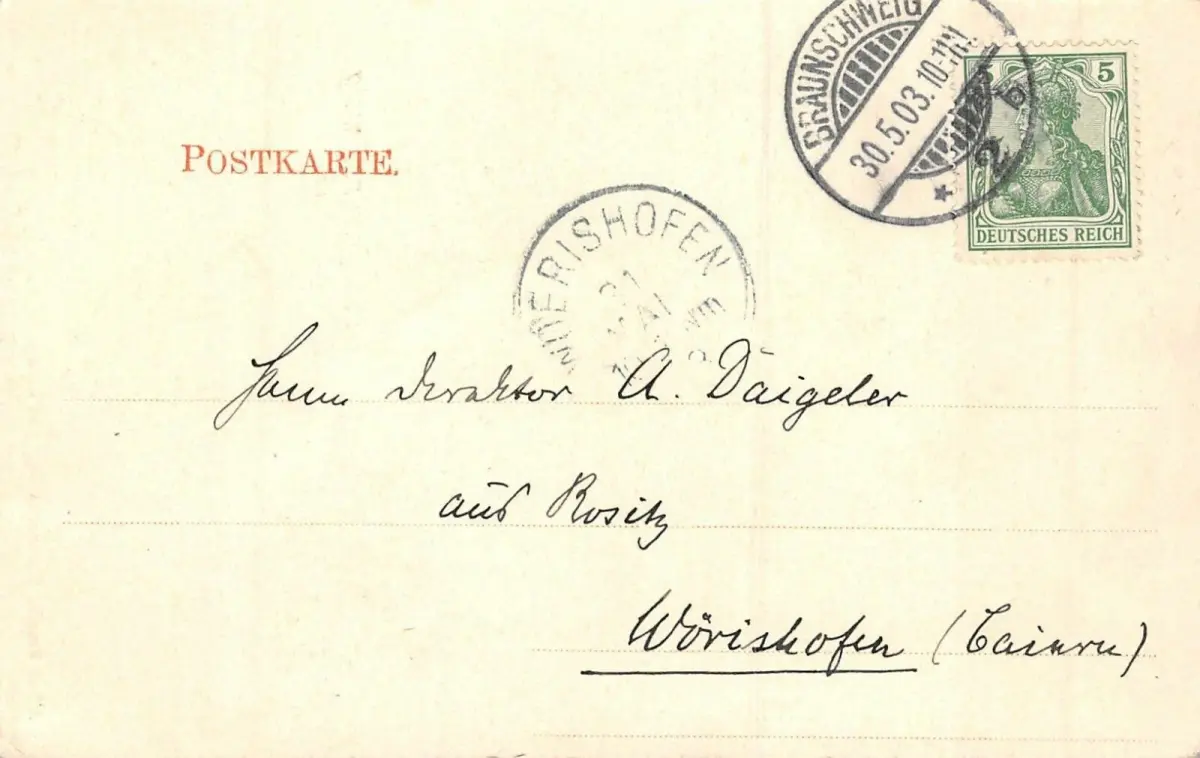 POSTKARTE.
BRAUNSCHWEIG
30.5.03. 10-11
* 2 b
5
DEUTSCHES REICH
WŒRISHOFEN
MAI
Herrn Direktor A. Daigeler
aus Rositz
Wörishofen (Baiern)